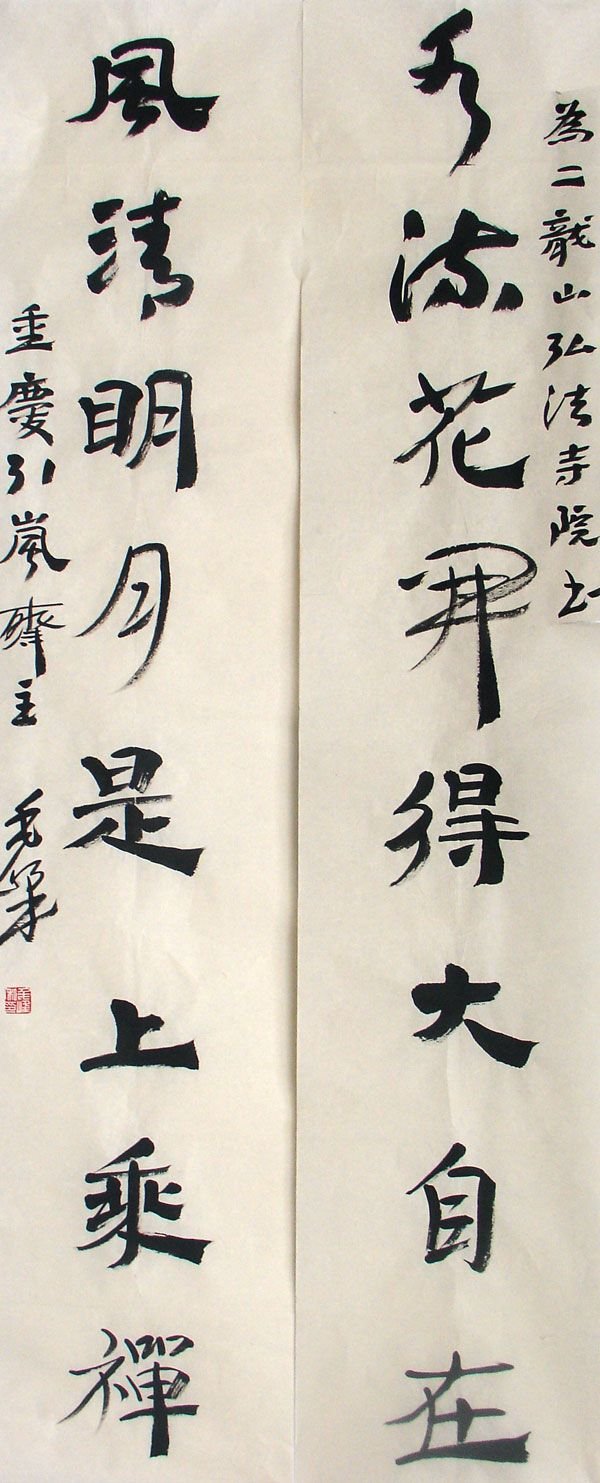 為二龍山弘法寺院书
水流花開得大自在
風清眀月是上乘禪
重慶引嵐齋主